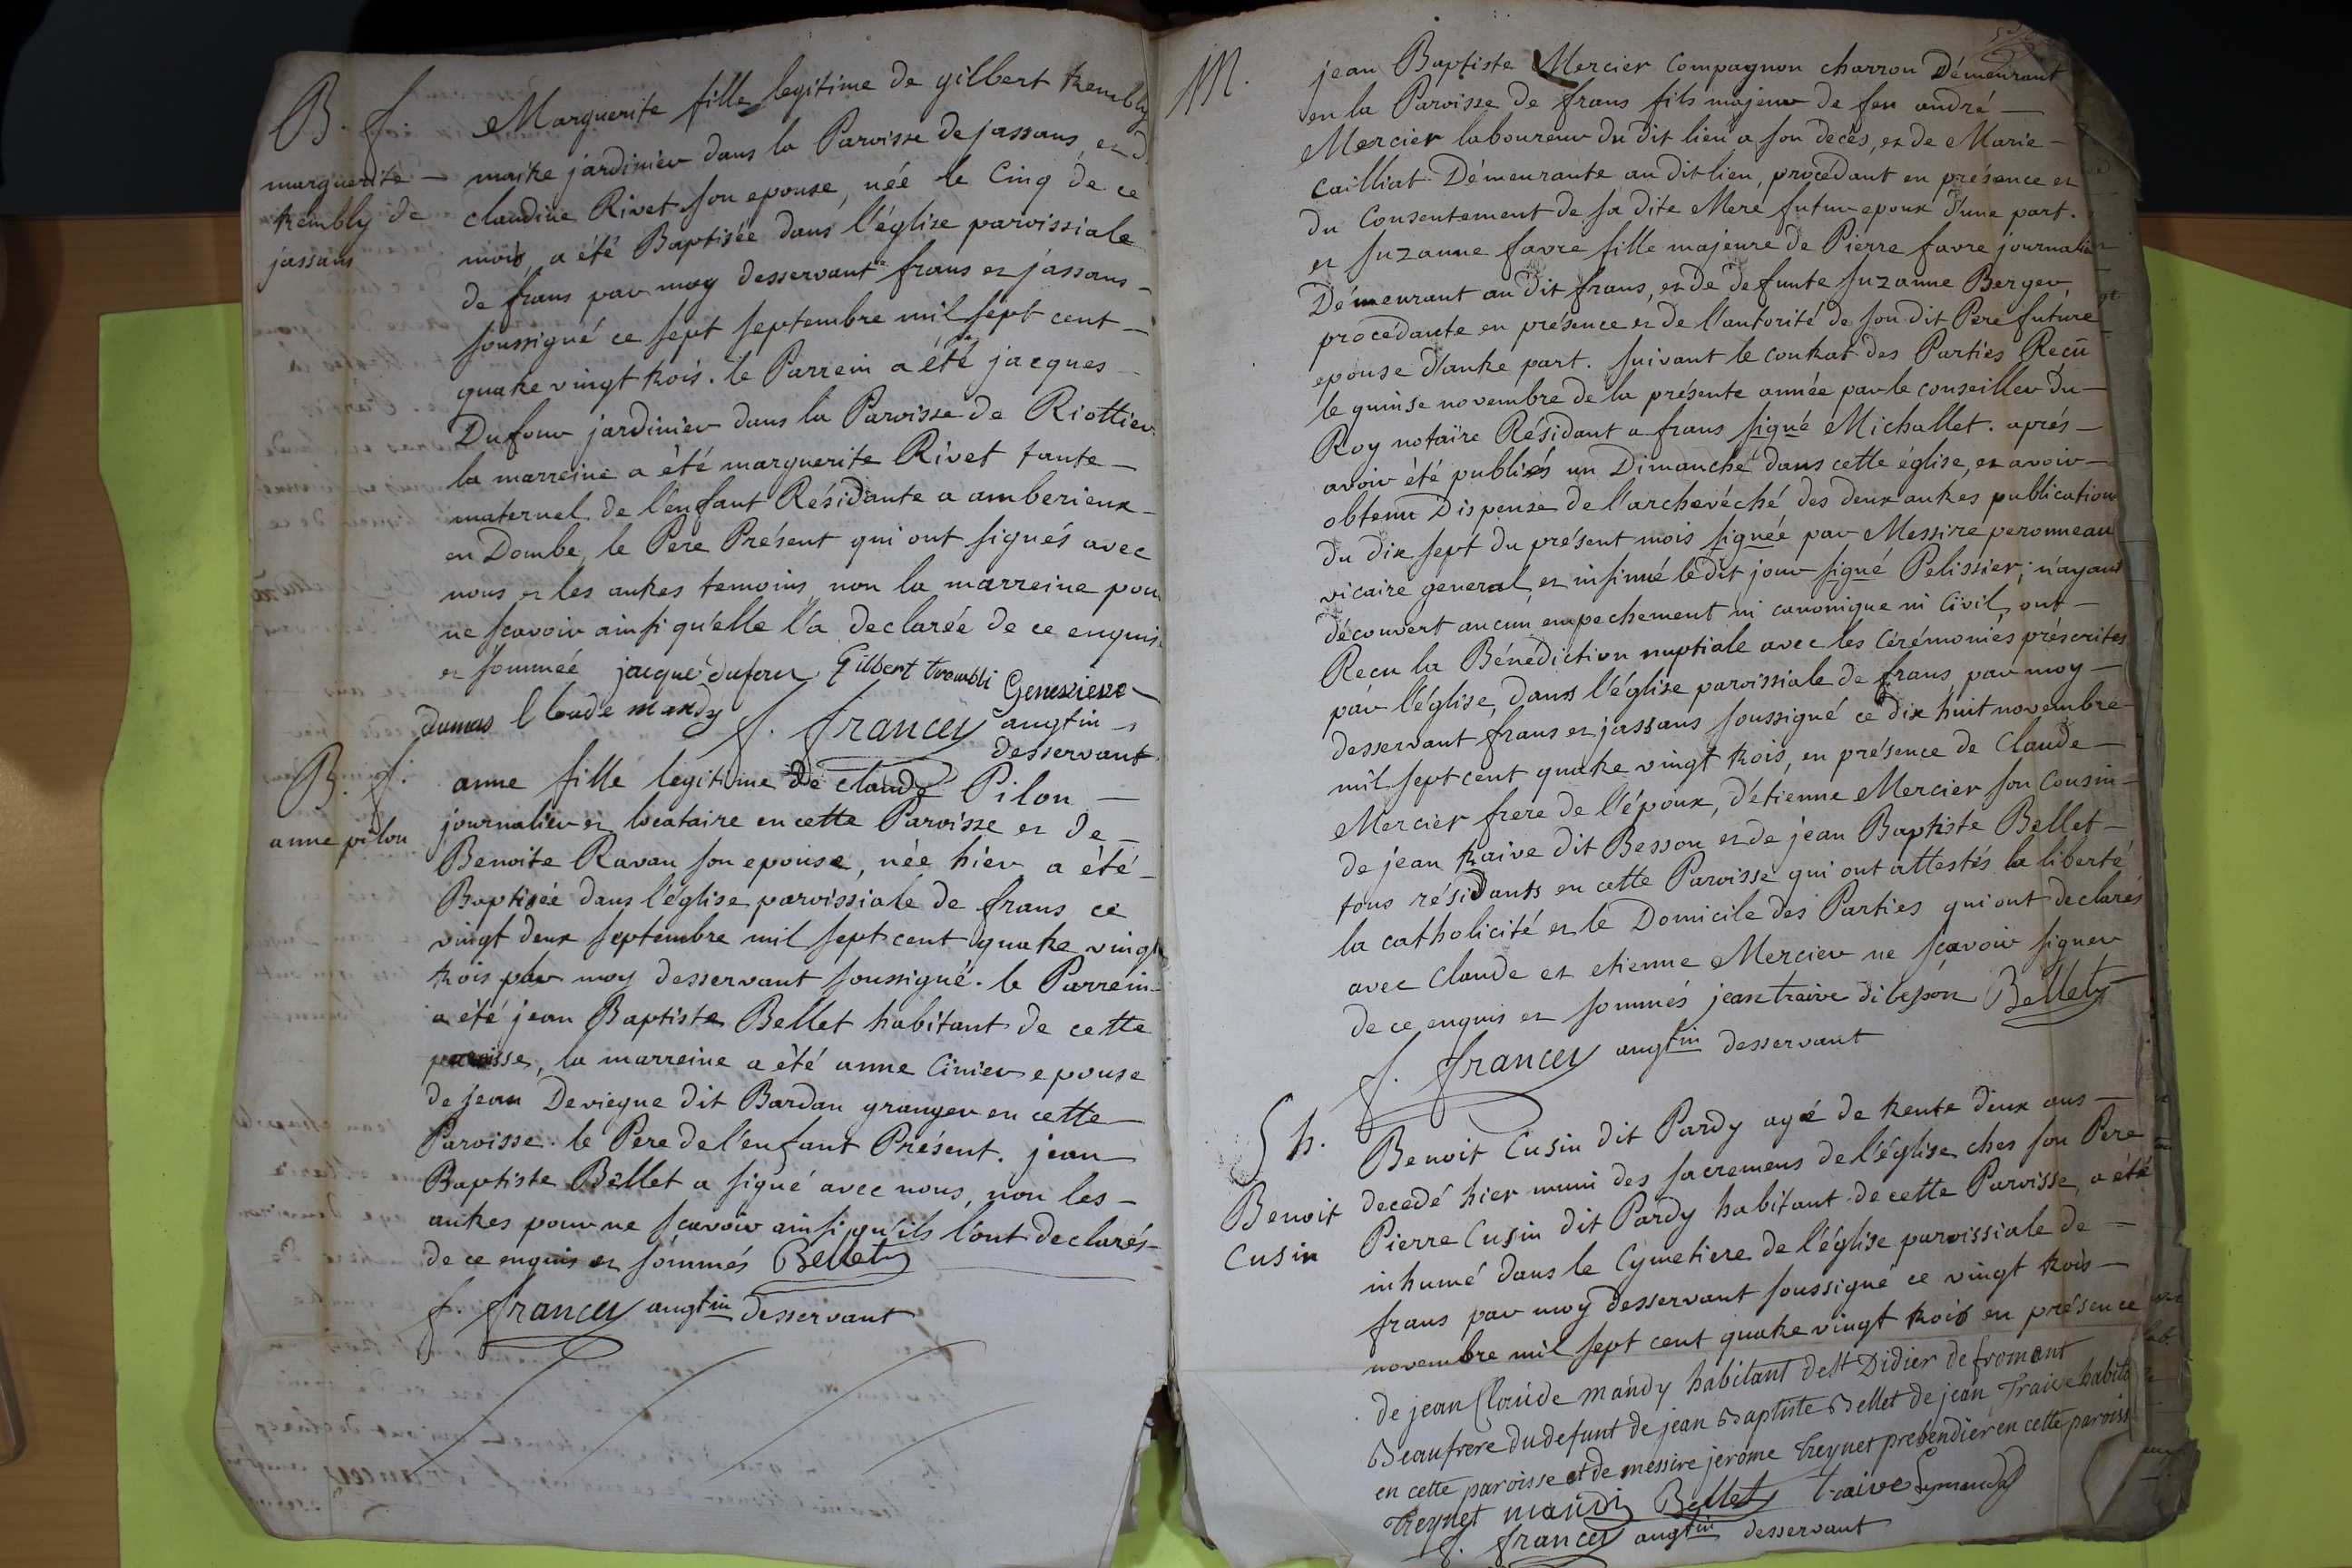 B. f.
marguerite
trembly de
jassans
Marguerite fille legitime de gilbert trembly
maitre jardinier dans la Paroisse de jassans, et d
claudine Rivet son epouse, née le Cinq de ce
mois, a été Baptisée dans l'église paroissiale
de frans par moy desservant frans et jassans
soussigné ce sept septembre mil sept cent
quatre vingt trois. le Parrein a été jacques
Dufour jardinier dans la Paroisse de Riottier
la marreine a été marguerite Rivet tante
maternel de l'enfant Résidante a amberieux
en Dombe, le Pere Présent qui ont signés avec
nous et les autres temoins non la marreine pour
ne sçavoir ainsi qu'elle l'a declarée de ce enquis
et sommée jaque dufour Gilbert trombli Genevieve
dumas Claude mandy f. francey augtin
desservant
B. f.
anne pilon
anne fille legitime de claude Pilon
journalier et locataire en cette Paroisse et de
Benoite Ravan son epouse, née hier a été
Baptisée dans l'église paroissiale de frans ce
vingt deux septembre mil sept cent quatre vingt
trois par moy desservant soussigné. le Parrein
a été jean Baptiste Bellet habitant de cette
paroisse, la marreine a été anne Cinier epouse
de jean Deviegue dit Bardan granger en cette
Paroisse. le Pere de l'enfant Présent. jean
Baptiste Bellet a signé avec nous, non les
autres pour ne sçavoir ainsi qu'ils l'ont declarés
de ce enquis et sommés Bellet
f. francey augtin desservant
M.
jean Baptiste Mercier Compagnon charron Démeurant
en la Paroisse de frans fils majeur de feu andré
Mercier laboureur du dit lieu a son decès, et de Marie
Cailliat Démeurante au dit lieu, procédant en présence et
du Consentement de sa dite Mere futur epoux d'une part.
et suzanne favre fille majeure de Pierre favre journalier
Démeurant au dit frans, et de defunte suzanne Berger
procédante en présence et de l'autorité de son dit Pere future
epouse d'autre part. suivant le contrat des Parties Reçû
le quinse novembre de la présente année par le conseiller du
Roy notaire Résidant a frans signé Michallet. aprés
avoir été publiés un Dimanche dans cette église, et avoir
obtenu Dispense de l'archevéché des deux autres publications
du dix sept du présent mois signée par Messire peronneau
vicaire general, et insinué le dit jour signé Pelissier; n'ayant
découvert aucun empechement ni canonique ni Civil, ont
Reçu la Bénédiction nuptiale avec les Cérémonies préscrites
par l'église, dans l'église paroissiale de frans par moy
desservant frans et jassans soussigné ce dix huit novembre
mil sept cent quatre vingt trois, en présence de Claude
Mercier frere de l'époux, d'étienne Mercier son Cousin
de jean traive dit Besson et de jean Baptiste Bellet
tous résidants en cette Paroisse qui ont attestés la liberté
la catholicité et le Domicile des Parties qui ont declarés
avec Claude et etienne Mercier ne sçavoir signer
de ce enquis et sommés jean traive di beson Bellet
f. francey augtin desservant
Sh.
Benoit
Cusin
Benoit Cusin dit Pardy agé de trente deux ans
decedé hier muni des sacremens de l'église ches son Pere
Pierre Cusin dit Pardy habitant de cette Paroisse, a été
inhumé dans le Cymetiere de l'église paroissiale de
frans par moy desservant soussigné ce vingt trois
novembre mil sept cent quatre vingt trois en présence
de jean Claude mandy habitant de st Didier de fromant
Beaufrere du defunt de jean Baptiste Bellet de jean Traive habita
en cette paroisse et de messire jerome Treynet prebendier en cette paroiss
Treynet mandi Bellet traive
f. francey augtin desservant